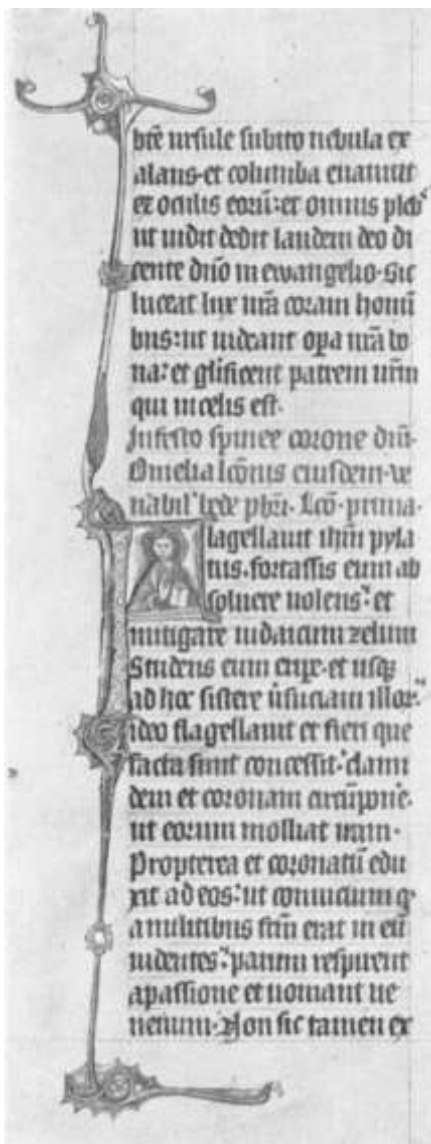 btē ursule subito nebula ex
alaus· et columba euanuit
ex oculis eorū: et omnis plebs
ut uidit dedit laudem deo di
cente dn̄o in ewangelio· Sic
luceat lux ur̄a coram homi
bus: ut uideant opa ur̄a bo
na: et glificent patrem ur̄m
qui in celis est·
In festo spinee corone dn̄i·
Omelia lc̄onis eiusdem ue
nabil' bede pbr̄i· Lc̄o· prima·
lagellauit ihm̄ pyla
tus· fortassis eum ab
soluere uolens: et
mitigare iudaicum zelum
Studens eum eripe· et usq
ad hoc sistere illor
ideo flagellauit et fieri que
facta sunt concessit: clami
dem et coronam circūpone·
ut eorum molliat iram·
Propterea et coronatū edu
xit ad eos: ut conuicium q
a militibus fcm̄ erat in eū
uidentes: parum respirent
a passione et uomant ue
nenum· Non sic tamen ex